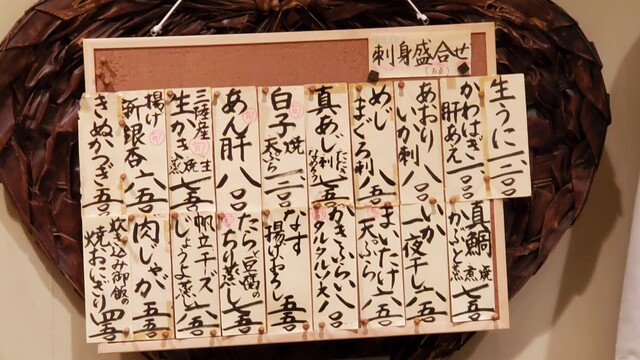 刺身盛合せ
生うに 一二〇〇
かわはぎ 肝あえ 一〇〇〇
あおりいか刺 八〇〇
めじまぐろ刺 八五〇
真あじ 刺 たたき なめろう 七五〇
白子 焼 天ぷら 一二〇〇
あん肝 八〇〇
三陸産 生がき 生 焼 蒸 七五〇
揚げ新銀杏 六五〇
きぬかつぎ 五五〇
真鯛 かぶと 焼 煮 蒸 七五〇
いか一夜干し 六五〇
まいたけ天ぷら 六五〇
かきふらい 八〇〇
タルタルソース
なす揚げおろし 五五〇
たらと豆腐のちり蒸し 七五〇
帆立チーズじょうよ蒸 六五〇
肉じゃが 五五〇
炊き込み御飯の焼おにぎり 四五〇